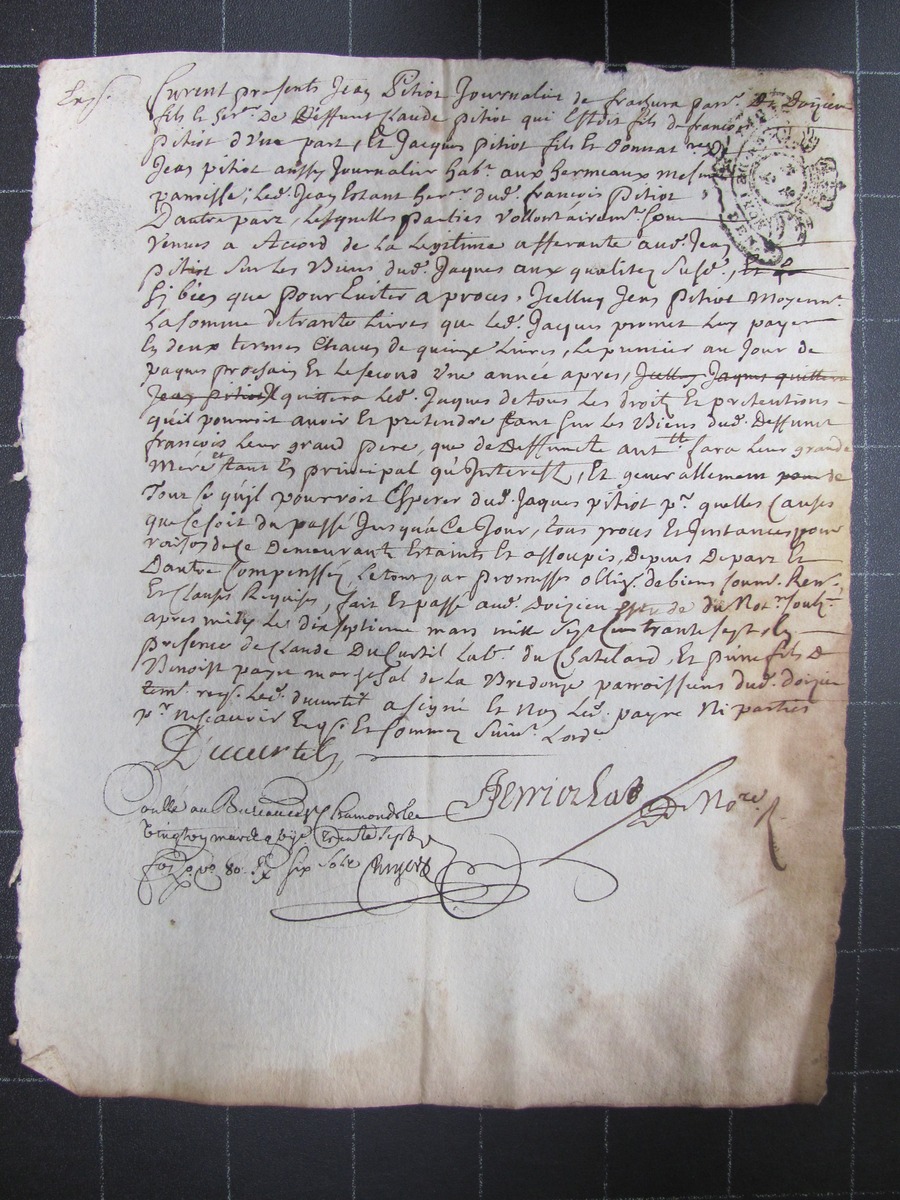 Furent presents Jean Pitiot Journalier de parr. Doizieu
fils et her.er de deffunt Claude pitiot qui Estoit fils de francois
pitiot d'Une part, Et Jacques pitiot fils Et donnat.re de
Jean pitiot aussy Journalier hab.t aux hermeaux mesme
parroisse; led. Jean Estant her.er dud. francois Pitiot
D'autre part, Lesquelles parties Vollontairem.t sont
Venues a Accord de La Legitime afferante aud. Jean
pitiot sur Les Biens dud. Jaques aux qualitez susd., Et
si bien que pour Eviter a proces, Icelluy Jean Pitiot Moyenn.t
La somme de trante Livres que Led. Jacques promet Luy payer
En deux termes Chacun de quinze Livres, Le premier au Jour de
paques prochain Et Le second Une année apres, Icelluy Jaques quittera
Jean pitiot quittera Led. Jaques de tous Les droits Et pretentions
qu'il pourroit avoir Et pretendre tant sur Les Biens dud. Deffunct
francois Leur grand pere, que de deffuncte ant.tte fara Leur grande
Mere et tant En principal qu'Interest, Et generallement de
Tout ce qu'il pourroit Esperer dud. Jaques pitiot p.r quelles Causes
que ce soit du passé Jusqu'a Ce Jour, tous proces Et Instances pour
raison de ce Demeurant Estaints Et assoupis, Depens De part Et
D'autre Compensséz, Le tout par promesses oblig. de biens soum. Ren.
Et Clauses Requises, fait Et passé aud. Doizieu du Not.re soub.né
apres midy Le dixseptieme mars mille Sept Cent trante sept, En
presence de Claude DuCurtil Lab.r du Chatelard, Et fils de
Benoist payre mareschal de La parroissiens dud. doizieu
tem. req. Led. ducurtil a signé Et Non Led. payre Ni parties
p.r ne scavoir Enq. Et Sommez Suiv.t Lord.ce
Ducurtil
Not.re
Conllé au Bureau de St Chamond le
Vingt mars trente sept
fo vo 80. Rx six sols